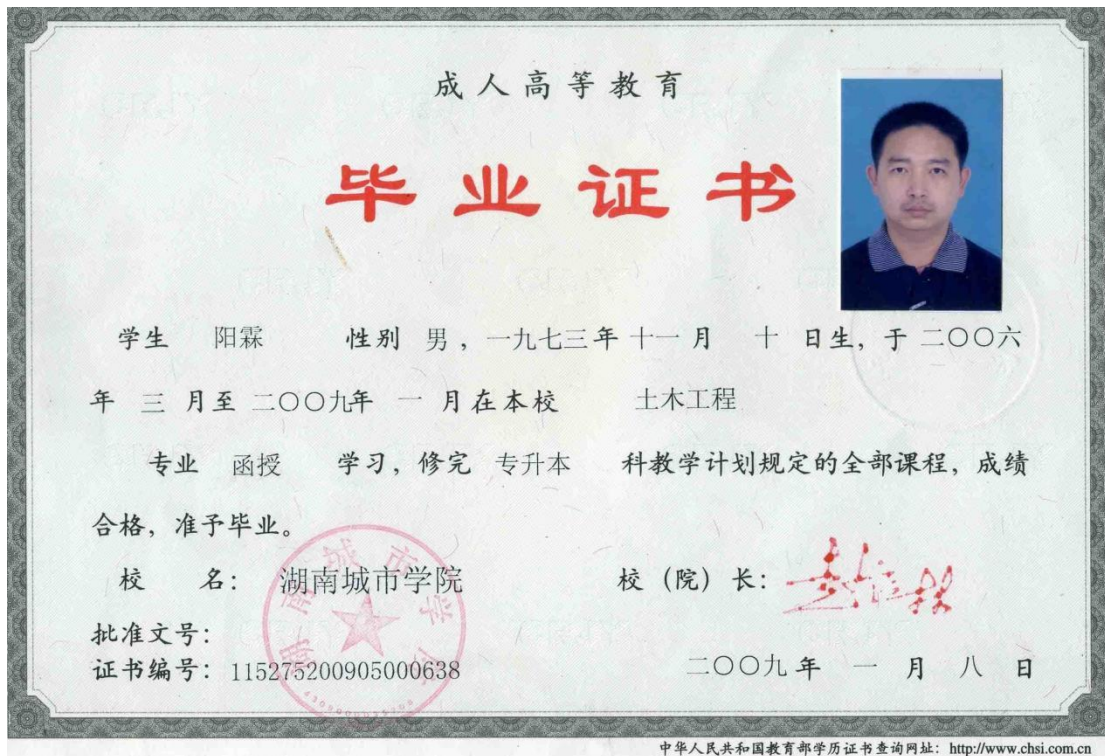 成人高等教育
毕业证书
学生 阳霖 性别 男，一九七三年十一月 十 日生，于 二〇〇六
年 三 月至 二〇〇九年 一 月在本校 土木工程
专业 函授 学习，修完 专升本 科教学计划规定的全部课程，成绩
合格，准予毕业。
校 名： 湖南城市学院 校（院）长：
批准文号：
证书编号：115275200905000638 二〇〇九年 一 月 八 日
湖南城市学院
中华人民共和国教育部学历证书查询网址：http://www.chsi.com.cn